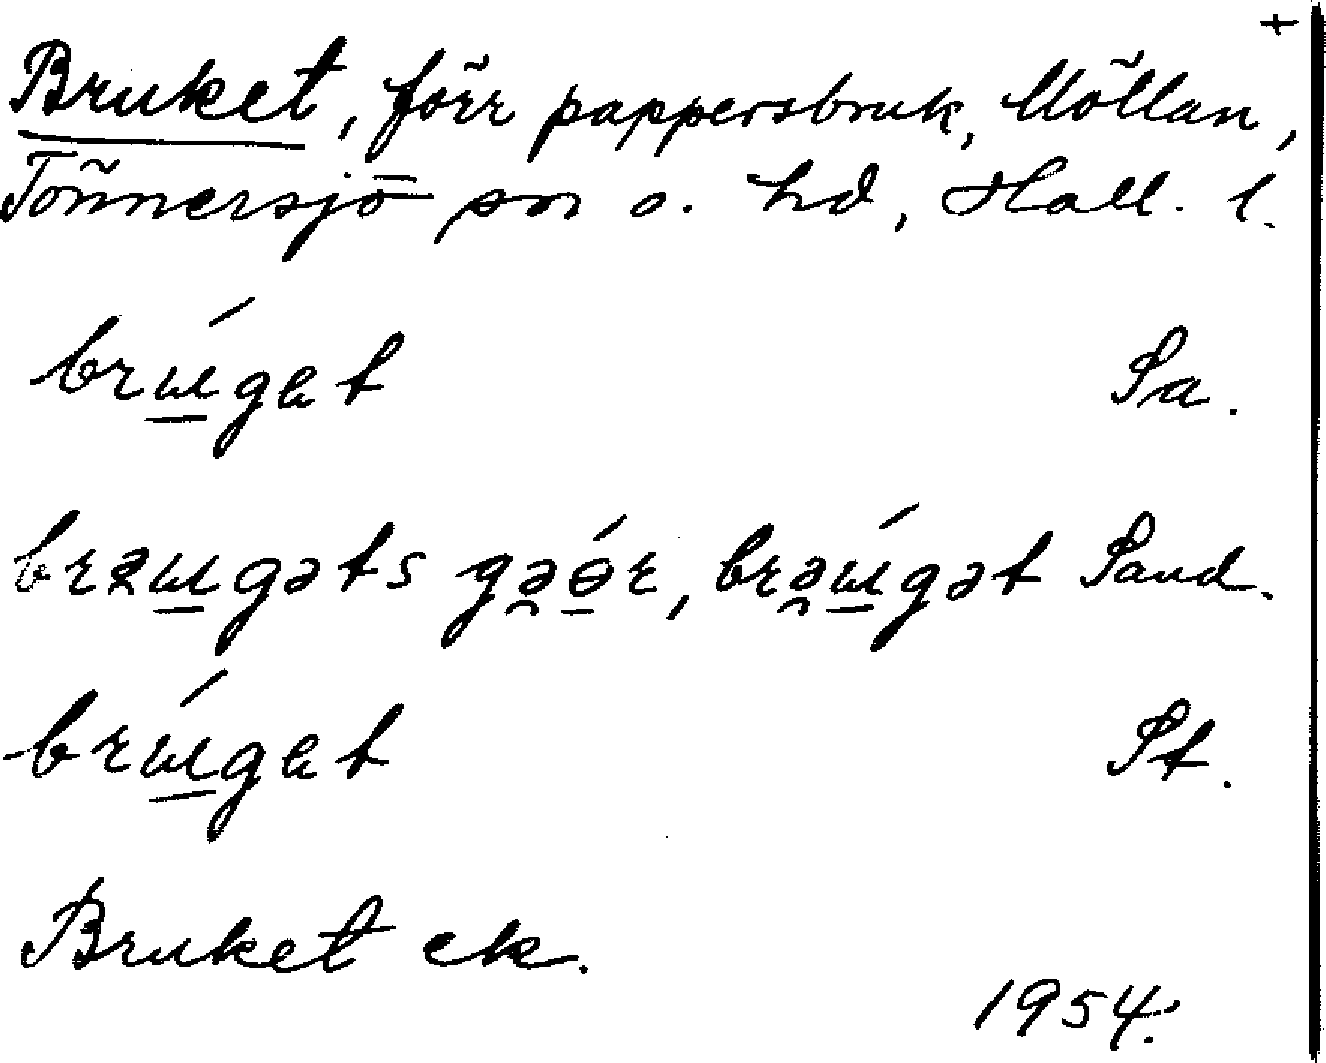 +
Bruket, förr pappersbruk, Möllan,
Tönnersjö sn o. hd, Hall. l.
brɯ́gat Sa.
brəɯgəts gəɵ́r, brəɯ́gət Sand.
brɯ́gat St.
Bruket ek.
1954.